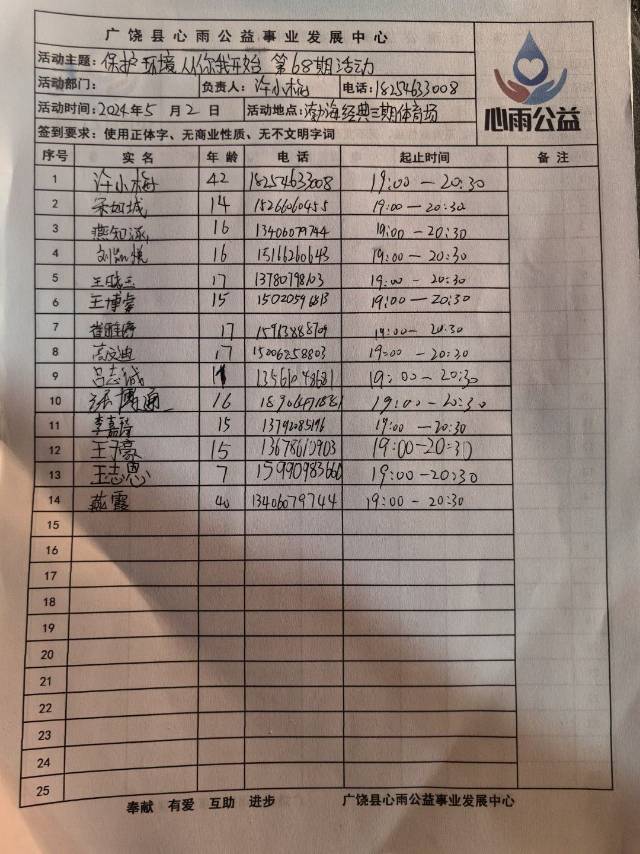 广饶县心雨公益事业发展中心
活动主题: 保护环境从你我开始 第68期活动
活动部门: 负责人: 许小梅 电话: 18254633008
活动时间: 2024年5月2日 活动地点: 渤海经典三期体育场
心雨公益
签到要求: 使用正体字、无商业性质、无不文明字词
序号 实名 年龄 电话 起止时间 备注
1 许小梅 42 18254633008 19:00-20:30
2 14 15266060455 19:00-20:30
3 燕知涵 16 13406079744 19:00-20:30
4 16 15166260643 19:00-20:30
5 17 13780798103 19:00-20:30
6 王博睿 15 19:00-20:30
7 17 15913888709 19:00-20:30
8 17 15006258803 19:00-20:30
9 吕志诚 19:00-20:30
10 16 19:00-20:30
11 李嘉 15 19:00-20:30
12 王子豪 15 13678610903 19:00-20:30
13 王志恩 7 15990983660 19:00-20:30
14 燕霞 40 13406079744 19:00-20:30
15
16
17
18
19
20
21
22
23
24
25
奉献 有爱 互助 进步 广饶县心雨公益事业发展中心